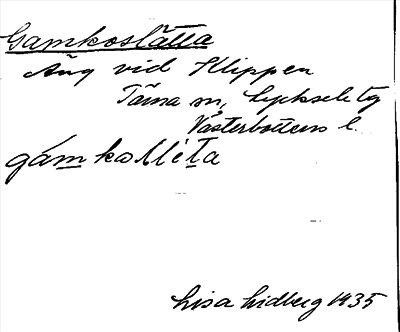 Gamkoslätta
Äng vid Klippen
Tärna sn, Lycksele tg
Västerbottens l.
gámkoslèta
Lisa Lidberg 1935